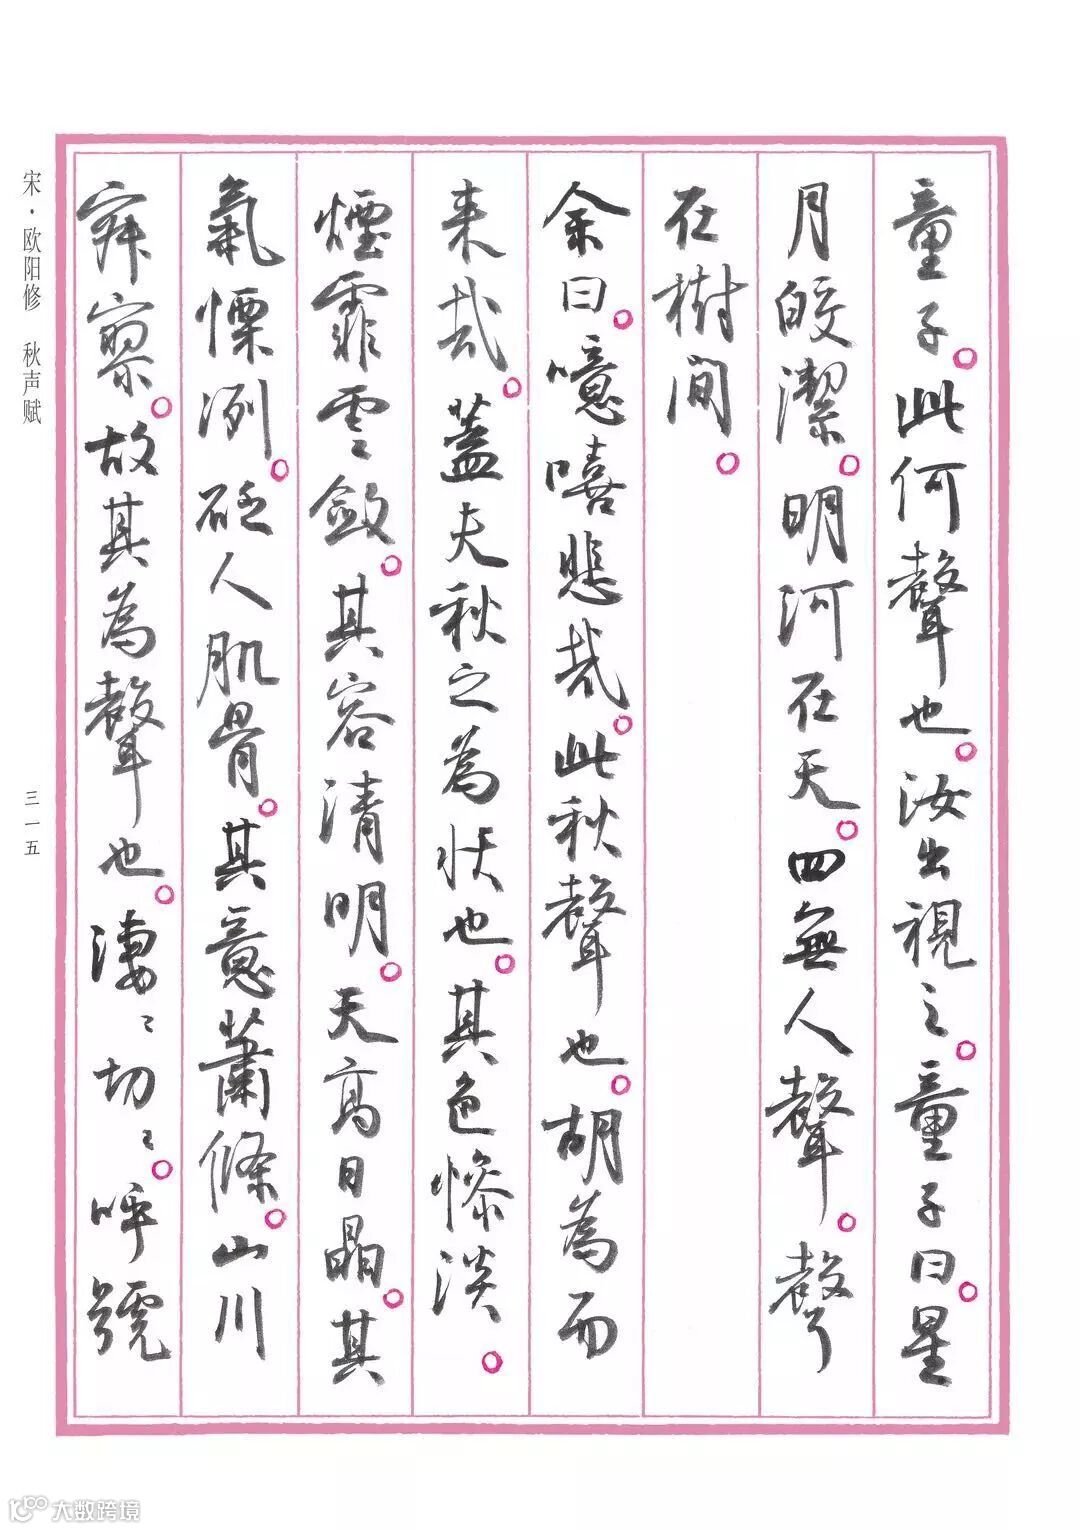 童子。此何聲也。汝出視之。童子曰。星
月皎潔。明河在天。四無人聲。聲
在樹間。
余曰。噫嘻悲哉。此秋聲也。胡為而
来哉。蓋夫秋之為状也。其色惨淡。
煙霏雲斂。其容清明。天高日晶。其
氣慄冽。砭人肌骨。其意蕭條。山川
寂寥。故其為聲也。淒〻切〻。呼號
宋·欧阳修 秋声赋
三一五
大数跨境